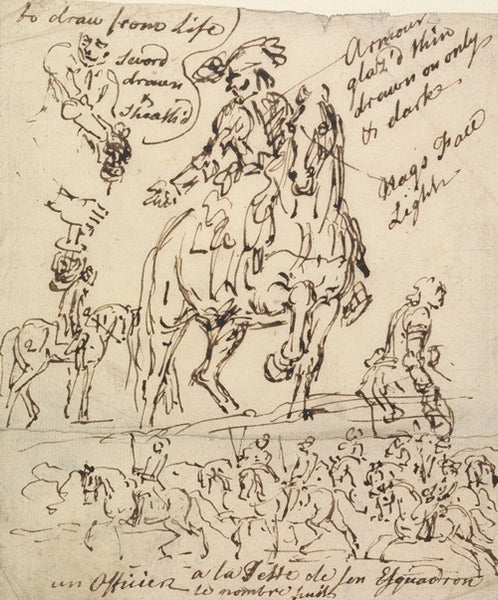 to draw from Life
sword
drawn
&
sheath'd
Armour
glaz'd thin
drawn on only
& dark
Nags Face
Light
un Officier a la Teste de son Esquadron
le nombre huit